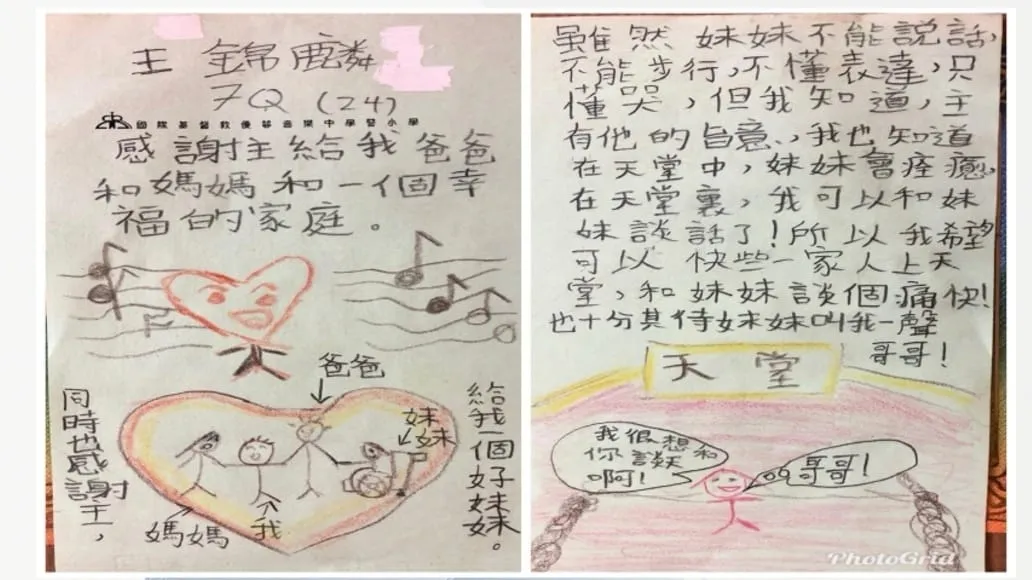 王錦麟
7Q (24)
國際基督教優質音樂中學暨小學
感謝主給我爸爸
和媽媽和一個幸
福的家庭。
同時也感謝主，
給我一個好妹妹。
爸爸
妹妹
媽媽
我
雖然妹妹不能說話，
不能步行，不懂表達，只
懂哭，但我知道，主
有他的旨意，我也知道
在天堂中，妹妹會痊癒，
在天堂裏，我可以和妹
妹談話了！所以我希望
可以快些一家人上天
堂，和妹妹談個痛快！
也十分其待妹妹叫我一聲
哥哥！
天堂
我很想和
你談天
啊！
哥哥！
PhotoGrid